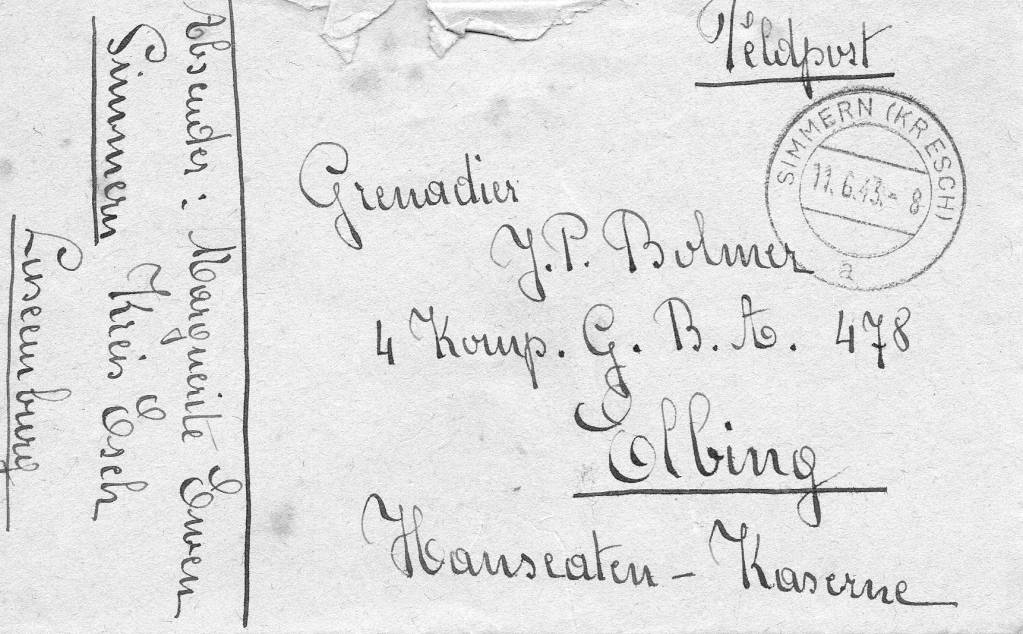 Feldpost
SIMMERN (KR ESCH)
11.6.43.-8
a
Grenadier
J.P. Bolmer
4 Komp. G. B. A. 478
Elbing
Hanseaten - Kaserne
Absender: Marguerite Ewen
Simmern Kreis Esch
Luxemburg